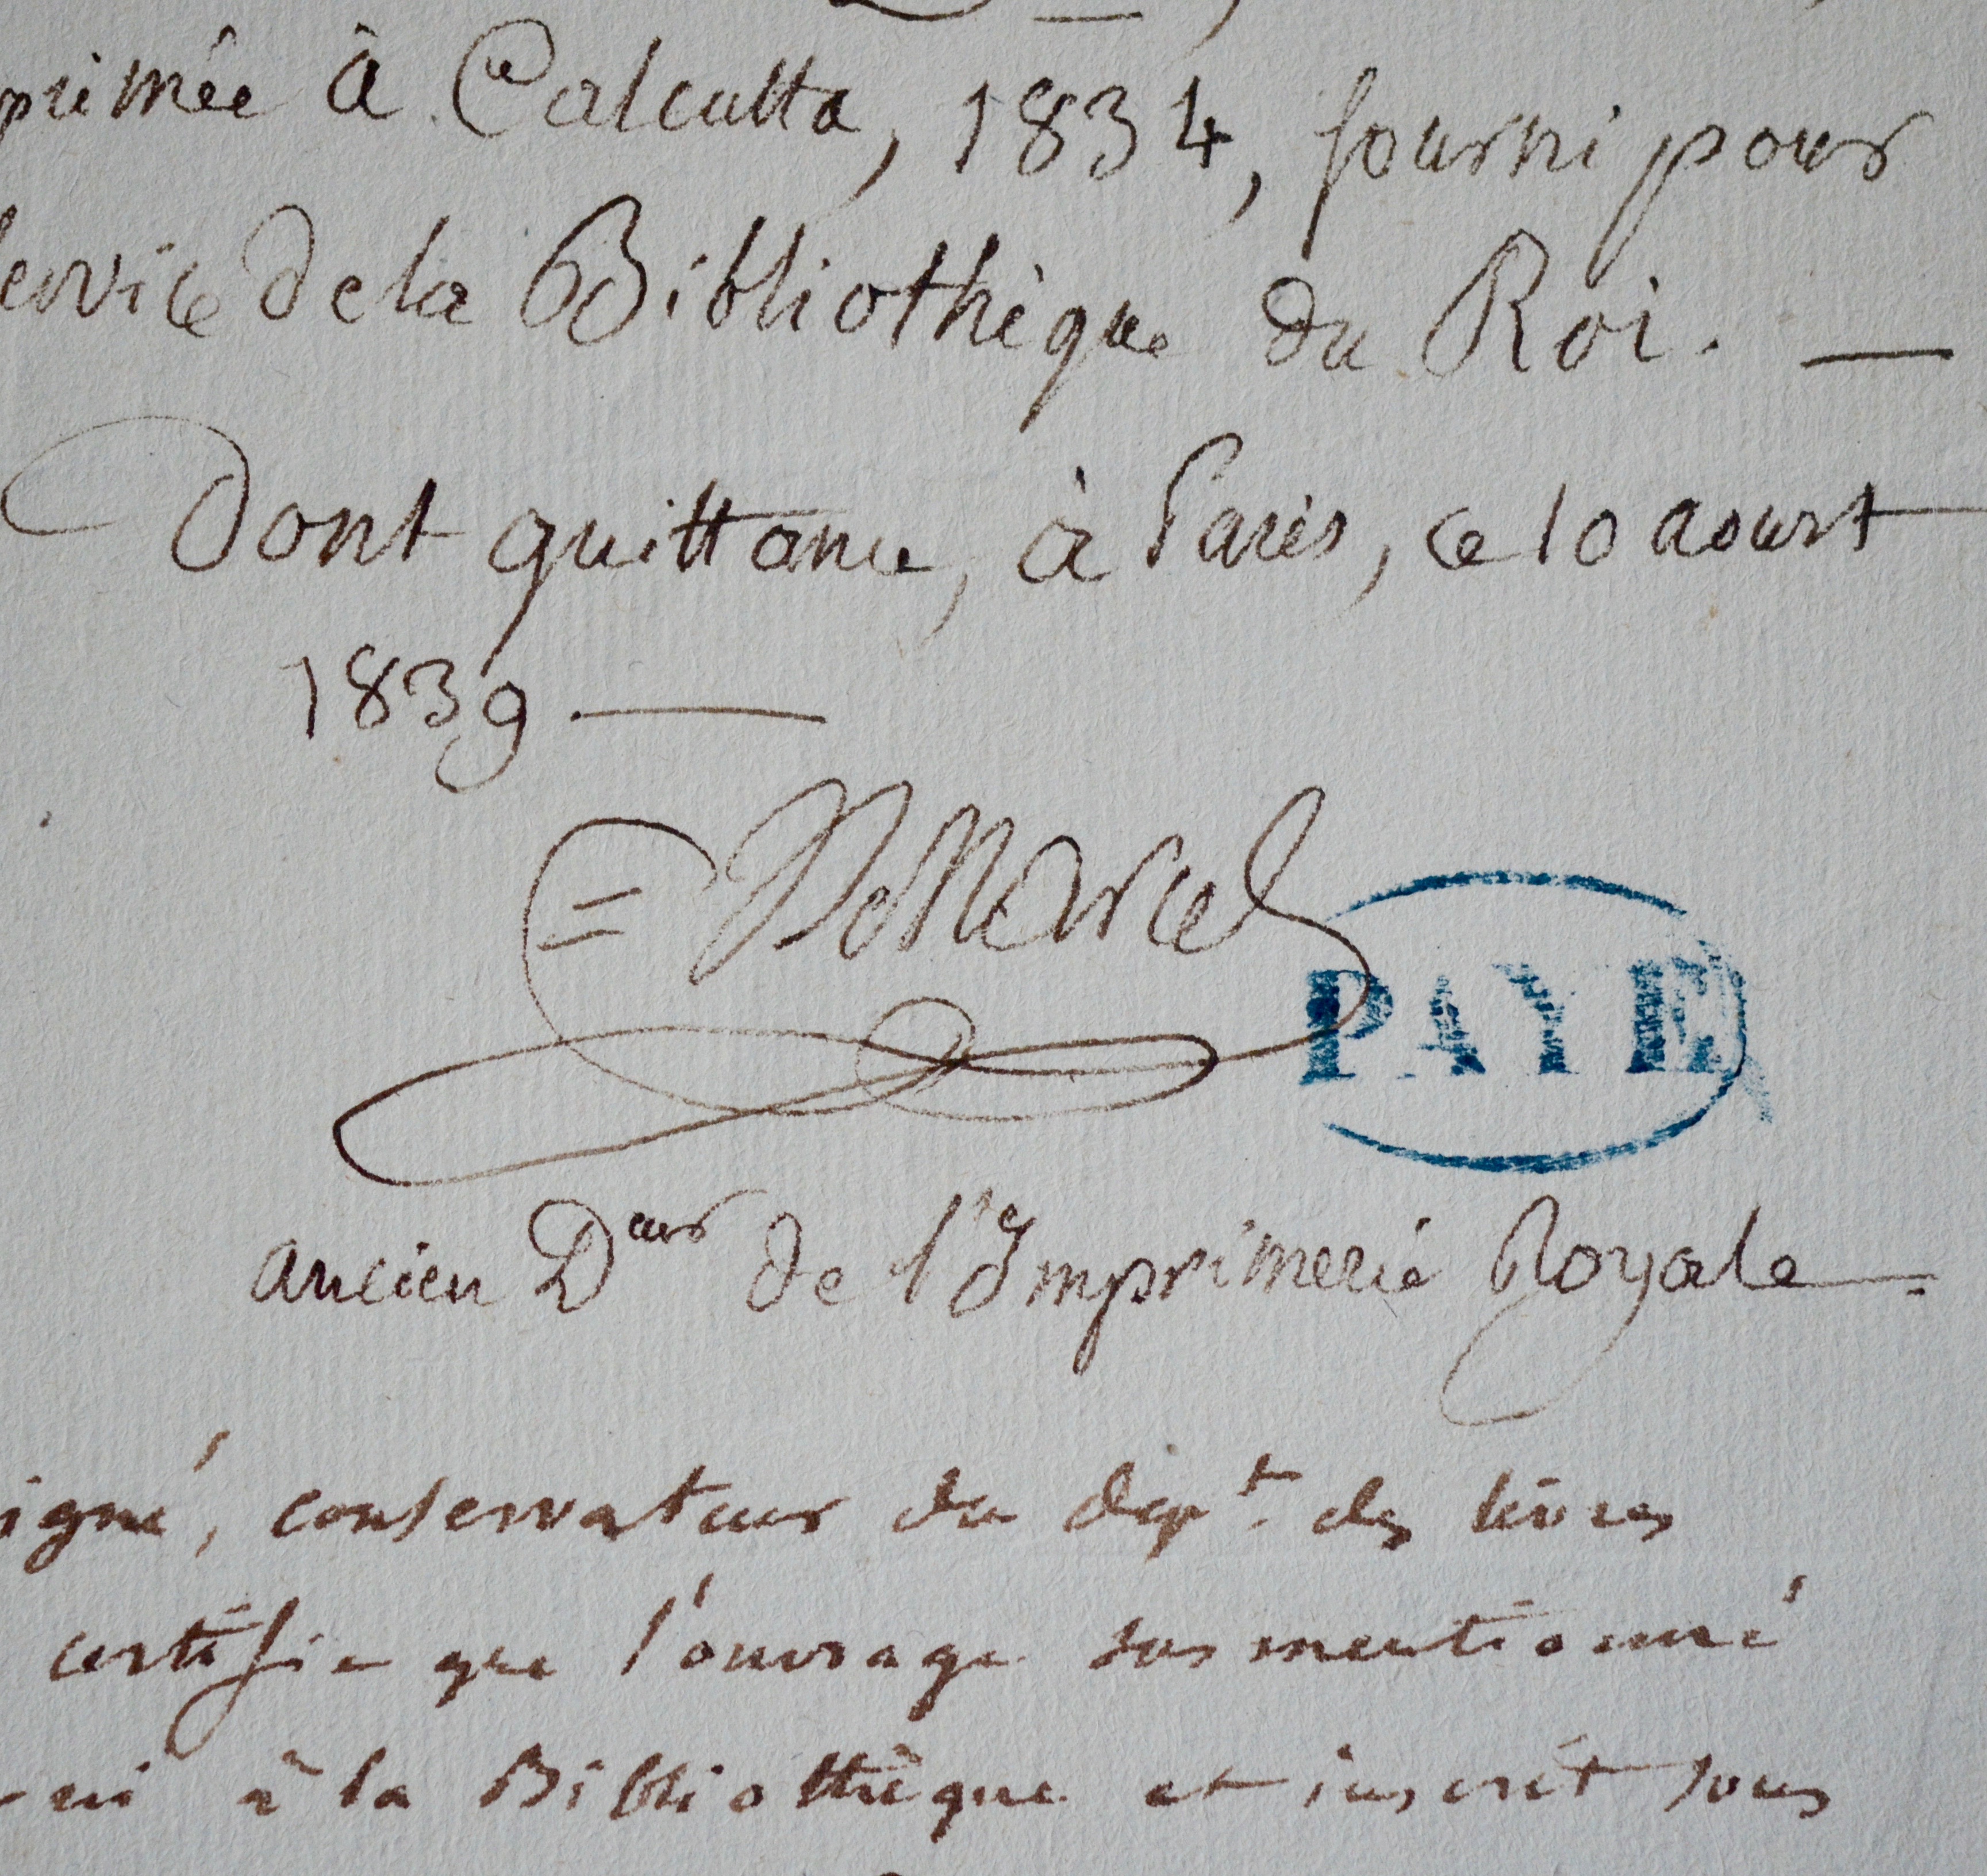 primée à Calcutta, 1834, fourni pour
service de la Bibliothèque du Roi. —
Dont quittance, à Paris, ce 10 aoust
1839 —
= Marcel
PAYÉ
ancien Deur de l'Imprimerie Royale
igné, conservateur du dépt. des livres
certifie que l'ouvrage susmentionné
à la Bibliothèque et inscrit sous